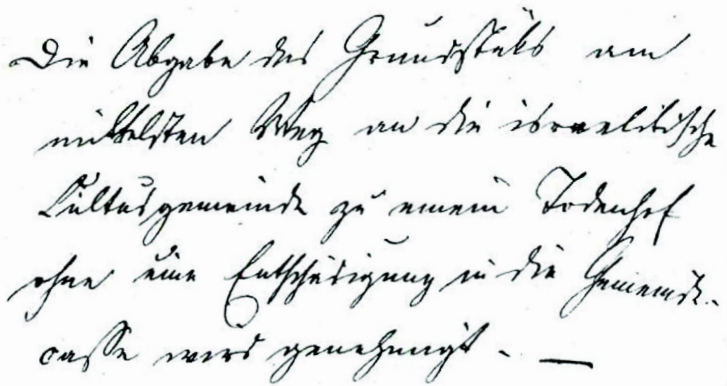 Die Abgabe des Grundstüks am
mittelsten Weg an die israelitische
Cultusgemeinde zu einem Todenhof
ohne eine Entschädigung in die Gemeinde-
casse wird genehmigt. —